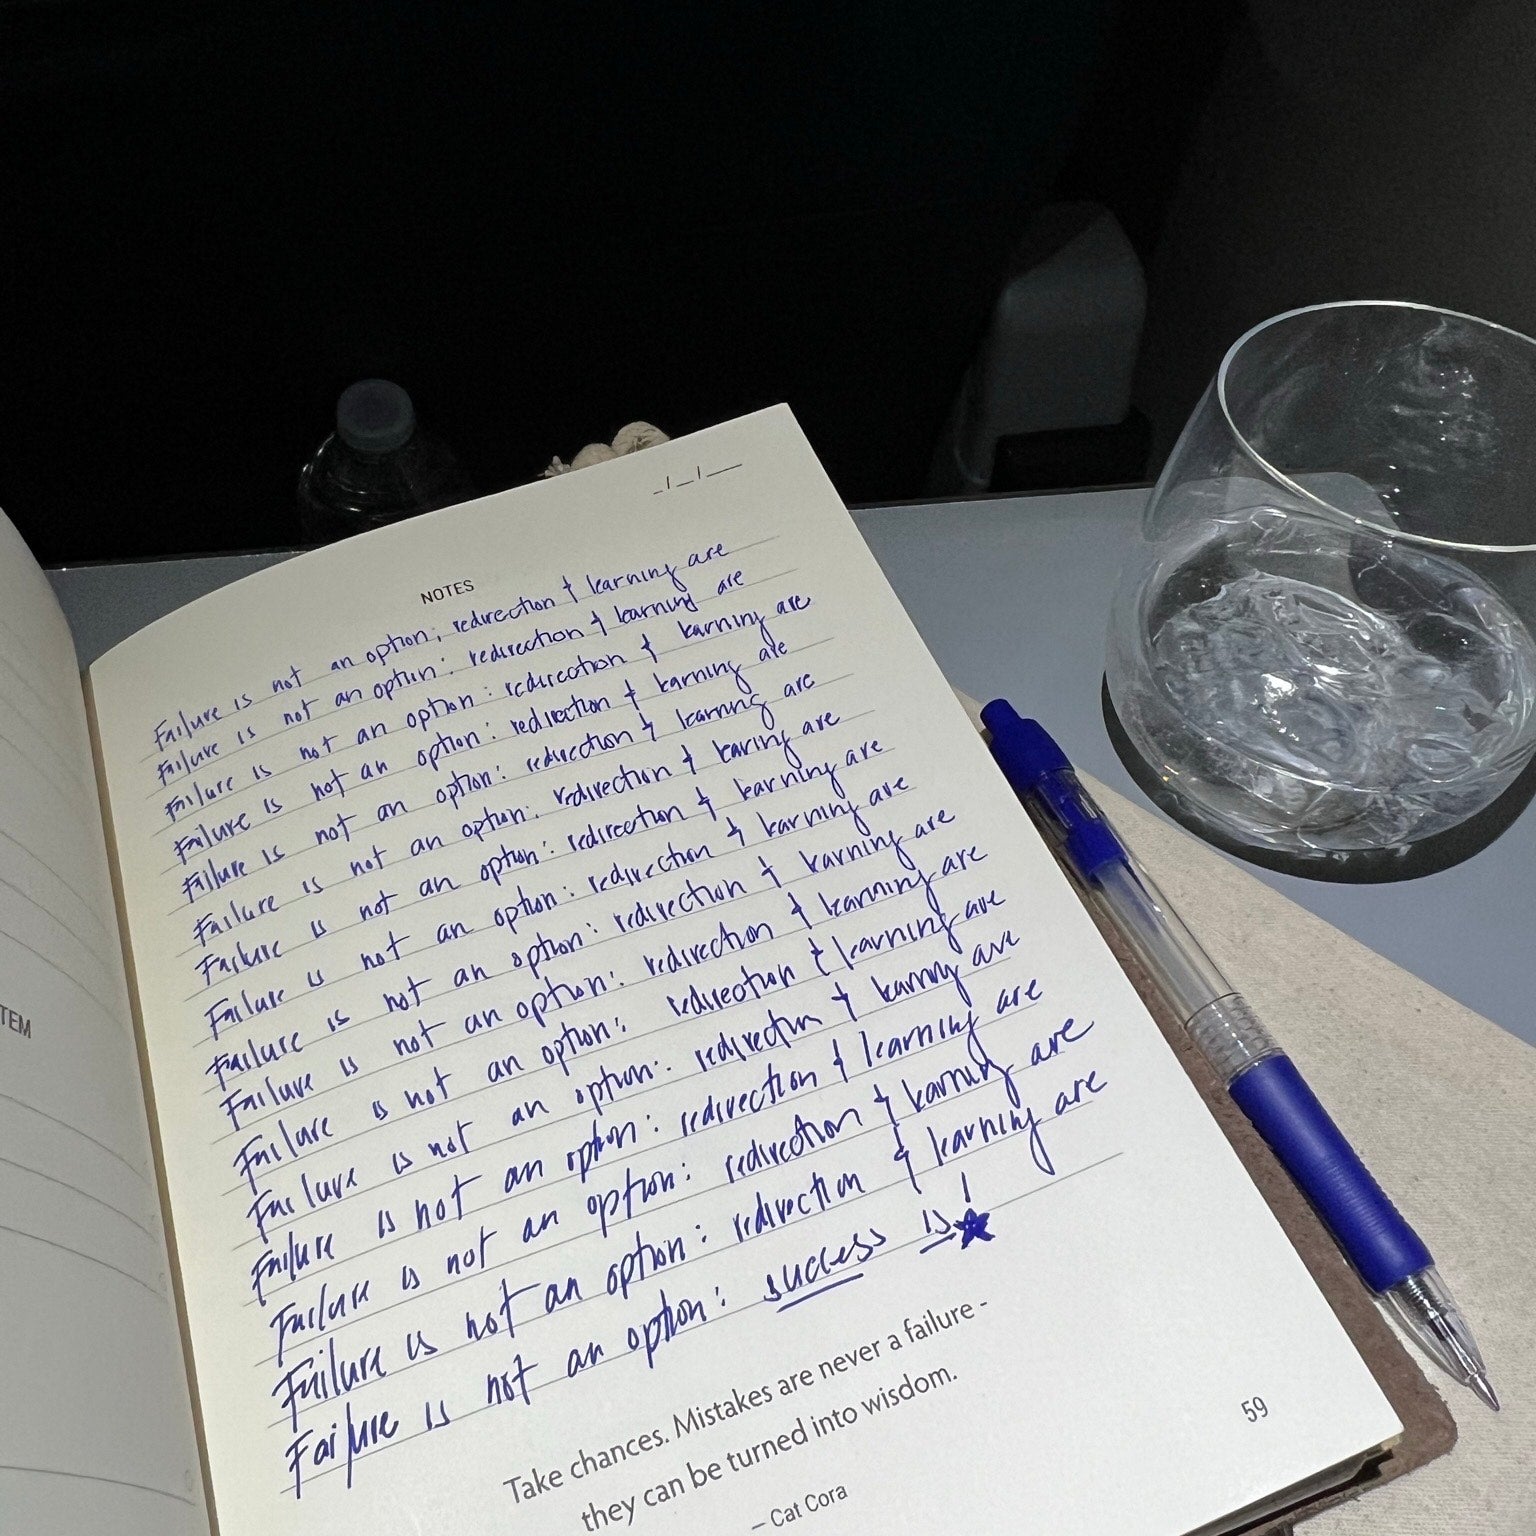 TEM
_/_/__
NOTES
Failure is not an option; redirection & learning are
Failure is not an option: redirection & learning are
Failure is not an option: redirection & learning are
Failure is not an option: redirection & learning are
Failure is not an option: redirection & learning are
Failure is not an option: redirection & learning are
Failure is not an option: redirection & learning are
Failure is not an option: redirection & learning are
Failure is not an option: redirection & learning are
Failure is not an option: redirection & learning are
Failure is not an option: redirection & learning are
Failure is not an option: redirection & learning are
Failure is not an option: redirection & learning are
Failure is not an option: redirection & learning are
Failure is not an option: redirection & learning are
Failure is not an option: success is!
Take chances. Mistakes are never a failure -
they can be turned into wisdom.
– Cat Cora
59